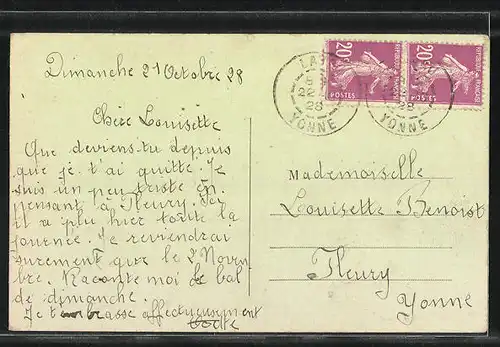 Dimanche 21 Octobre 28
Chère Louisette
Que deviens-tu depuis
que je t'ai quitté. Je
suis un peu triste en
pensant à Fleury. Ici
il a plu hier toute la
journée. Je reviendrai
surement que le 2 Novem
bre. Raconte moi le bal
de dimanche.
Je t'embrasse affectueusement
20c 20c
POSTES POSTES
22
28 28
YONNE YONNE
Mademoiselle
Louisette Benoist
Fleury
Yonne